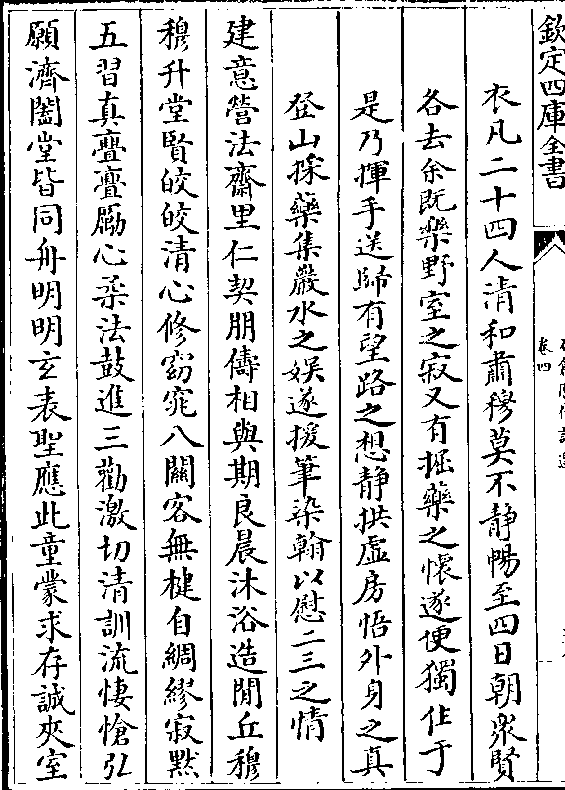 欽定四庫全書
卷四
衣凡二十四人清和肅穆莫不静暢至四日朝衆賢
各去余既樂野室之寂又有掘藥之懷遂便獨住于
是乃揮手送歸有望路之想静拱虚房悟外身之真
登山採藥集巖水之娱遂援筆染翰以慰二三之情
建意營法齋里仁契朋儔相與期良晨沐浴造閒丘穆
穆升堂賢皎皎清心修窈窕八關客無楗自綢繆寂黙
五習真亹亹勵心柔法鼓進三勸激切清訓流悽愴弘
願濟闔堂皆同舟明明玄表聖應此童蒙求存誠夾室